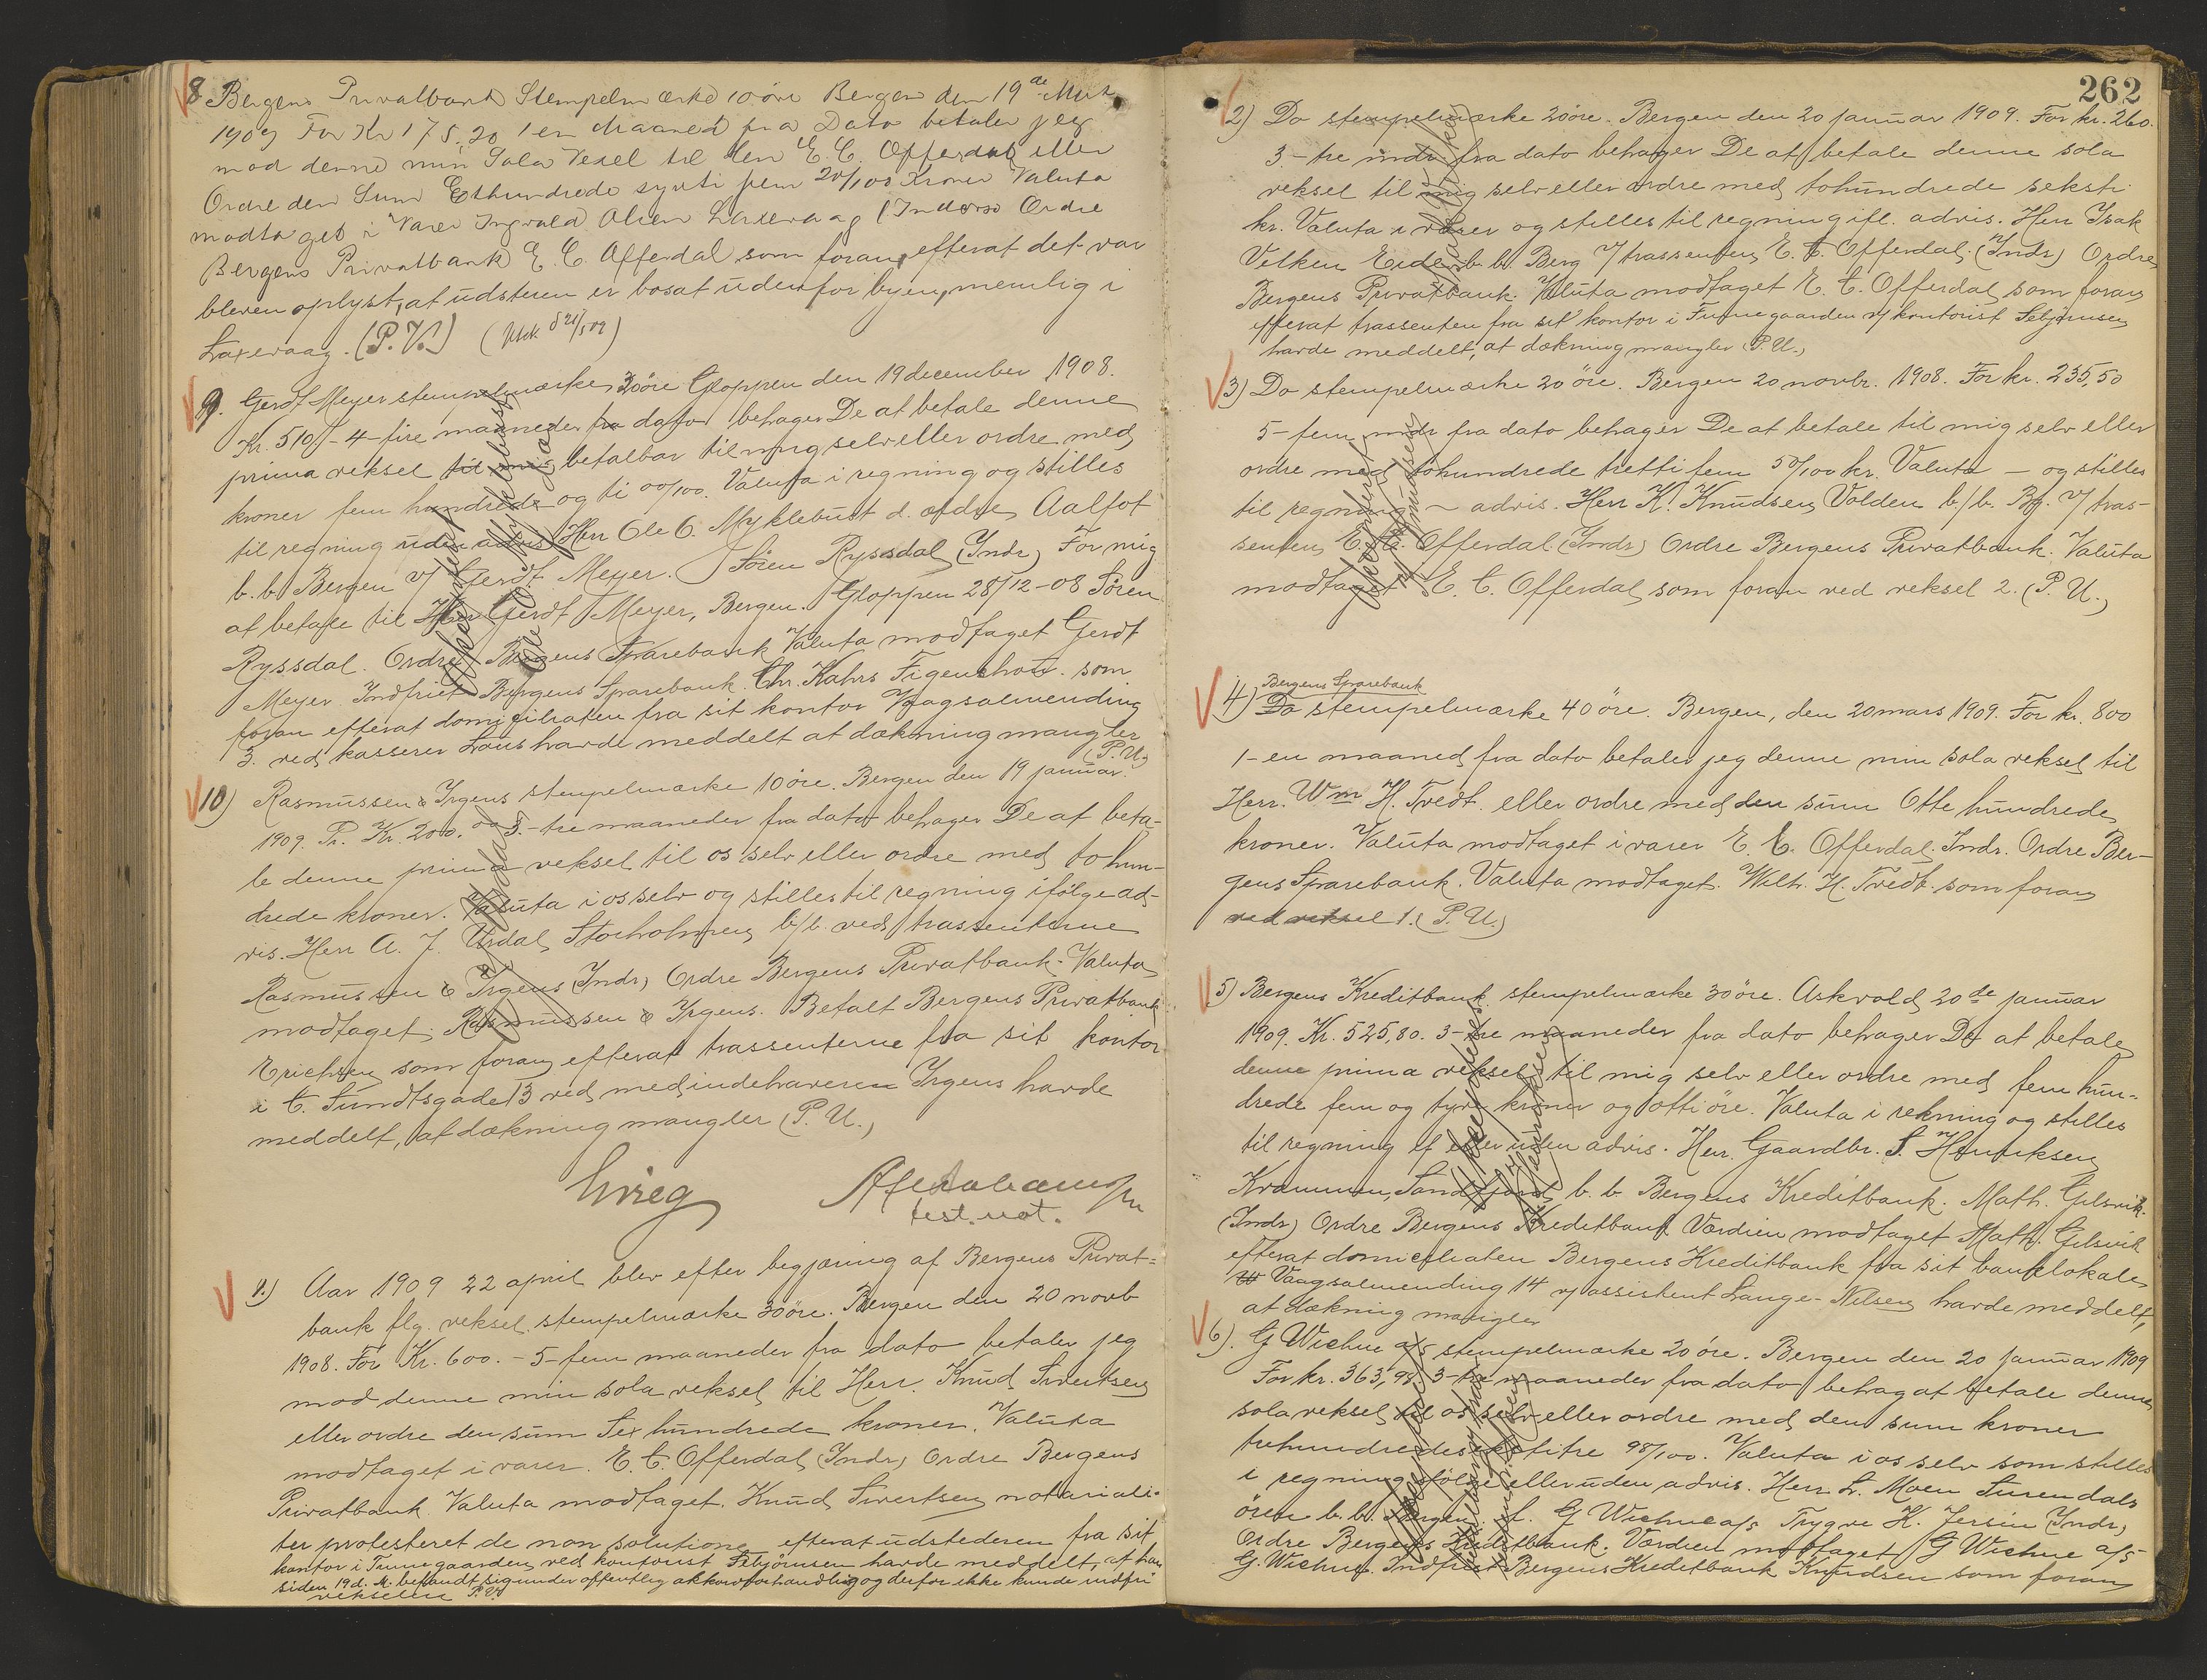 8 Bergens Privatbank Stempelmærke 10 öre Bergen den 19de Mars
1909 For Kr 175,20 1 en Maaned fra Dato betaler jeg
mod denne min Sola Vexel til Herr E. C. Offerdal eller
Ordre den Sum Ethundrede sytti fem 20/100 Kroner Valuta
modtaget i Varer Ingvald Olsen Laxevaag (Indoss) Ordre
Bergens Privatbank E. C. Offerdal som foran, efterat det var
bleven oplyst, at udstederen er bosat udenfor byen, nemlig i
Laxevaag. (P. U.)
9. Gerdt Meyer stempelmærke 30 öre Gloppen den 19 december 1908.
Kr. 510,- 4-fire maaneder fra dato behager De at betale denne
prima veksel til mig betalbar til mig selv eller ordre med
kroner fem hundrede og ti 00/100. Valuta i regning og stilles
til regning uden advis Herr Ole O. Myklebust d. ældre Aalfot
b. b. Bergen v/ Gerdt Meyer. Sören Ryssdal (Indr) For mig
at betale til Herr Gerdt Meyer, Bergen. Gloppen 28/12-08 Sören
Ryssdal. Ordre Bergens Sparebank Valuta modtaget Gerdt
Meyer Indfriet Bergens Sparebank. Chr. Kahrs Figenschou. som
foran efterat domiciliaten fra sit kontor Vaagsalmending
3. ved kasserer Lous havde meddelt at dækning mangler
(P. U.)
10) Rasmussen & Irgens stempelmærke 10 öre. Bergen den 19 januar
1909. Pr. Kr. 200.00 3.-tre maaneder fra dato behager De at beta-
le denne prima veksel til os selv eller ordre med tohun-
drede kroner. Valuta i os selv og stilles til regning ifölge ad-
vis. Herr A. J. Urdal Storholmen b/b. ved trassenterne
Rasmussen & Irgens (Indr) Ordre Bergens Privatbank. Valuta
modtaget. Rasmussen & Irgens. Betalt Bergens Privatbank
Erichsen som foran efterat trassenterne fra sit kontor
i C. Sundtsgade 13 ved medindehaveren Irgens havde
meddelt, at dækning mangler (P. U.)
1.) Aar 1909 22 april blev efter begjæring af Bergens Privat=
bank flg. veksel, stempelmærke 30 öre. Bergen den 20 novb
1908. For Kr. 600.- 5-fem maaneder fra dato betaler jeg
mod denne min sola veksel til Herr. Knud Sivertsen
eller ordre den sum Sex hundrede kroner. Valuta
modtaget i varer. E. C. Offerdal (Indr) Ordre Bergens
Privatbank Valuta modtaget. Knud Sivertsen notariali-
ter protesteret de non solutione efterat udstederen fra sit
kontor i Finnegaarden ved kontorist Seljømsen havde meddelt, at han
siden 19 d. M. befandt sig under offentlig akkordforhandling og derfor ikke kunde indfri
vekselen P.U.
262
2) Do stempelmærke 20 öre. Bergen den 20 januar 1909. For kr. 260.
3-tre mdr fra dato behager De at betale denne sola
veksel til mig selv eller ordre med tohundrede seksti
kr. Valuta i varer og stilles til regning ifl. advis. Herr Isak
Velken Eide b. b. Berg v/ trassenten E. C. Offerdal. (Indr) Ordre
Bergens Privatbank. Valuta modtaget E. C. Offerdal som foran
efterat trassenten fra sit kontor i Finnegaarden v/ kontorist Seljømsen
havde meddelt, at dækning mangler (P. U.)
3) Do stempelmærke 20 öre. Bergen 20 novbr. 1908. For kr. 235,50
5-fem mdr fra dato behager De at betale til mig selv eller
ordre med tohundrede tretti fem 50/100 kr. Valuta — og stilles
til regning ~ advis. Herr K. Knudsen Valden b/b. Bg. v/ tras-
senten E. C. Offerdal (Indr) Ordre Bergens Privatbank. Valuta
modtaget E. C. Offerdal som foran ved veksel 2. (P. U.)
Bergens Sparebank
4) Do stempelmærke 40 öre. Bergen, den 20 mars 1909. For kr. 800
1-en maaned fra dato betaler jeg denne min sola veksel til
Herr. Wm H. Tvedt. eller ordre med den sum Otte hundrede
kroner. Valuta modtaget i varer E. C. Offerdal. Indr. Ordre Ber-
gens Sparebank. Valuta modtaget. Wilh. H. Tvedt. som foran
ved veksel 1. (P. U.)
5) Bergens Kreditbank stempelmærke 30 öre. Askvold 20de januar
1909. Kr. 525,80. 3-tre maaneder fra dato behager De at betale
denne prima veksel til mig selv eller ordre med fem hun-
drede fem og tyve kroner og otti öre. Valuta i rekning og stilles
til regning ef eller uden advis. Herr. Gaardbr. S. Henriksen
Krammen, Sandfjord b. b. Bergens Kreditbank. Math. Gilsvik.
(Indr) Ordre Bergens Kreditbank. Værdien modtaget Math. Gilsvik
efterat domiciliaten Bergens Kreditbank fra sit banklokale
Vaagsalmending 14 v/ assistent Lange-Nilsen havde meddelt,
at dækning mangler
6). G Wiehne a/s stempelmærke 20 öre. Bergen den 20 Januar 1909
For kr. 363,98. 3-tre maaneder fra dato behag at betale denne
sola veksel til os selv eller ordre med den sum kroner
trehundredesekstitre 98/100. Valuta i os selv som stilles
i regning ifölge eller uden advis. Herr L. Moen Surendals
ören b. b. Bergen. f. G Wiehne a/s Trygve K. Jersin (Indr)
Ordre Bergens Kreditbank. Værdien modtaget G Wiehne a/s
G. Wiehne. Indfriet Bergens Kreditbank Knudsen som foran